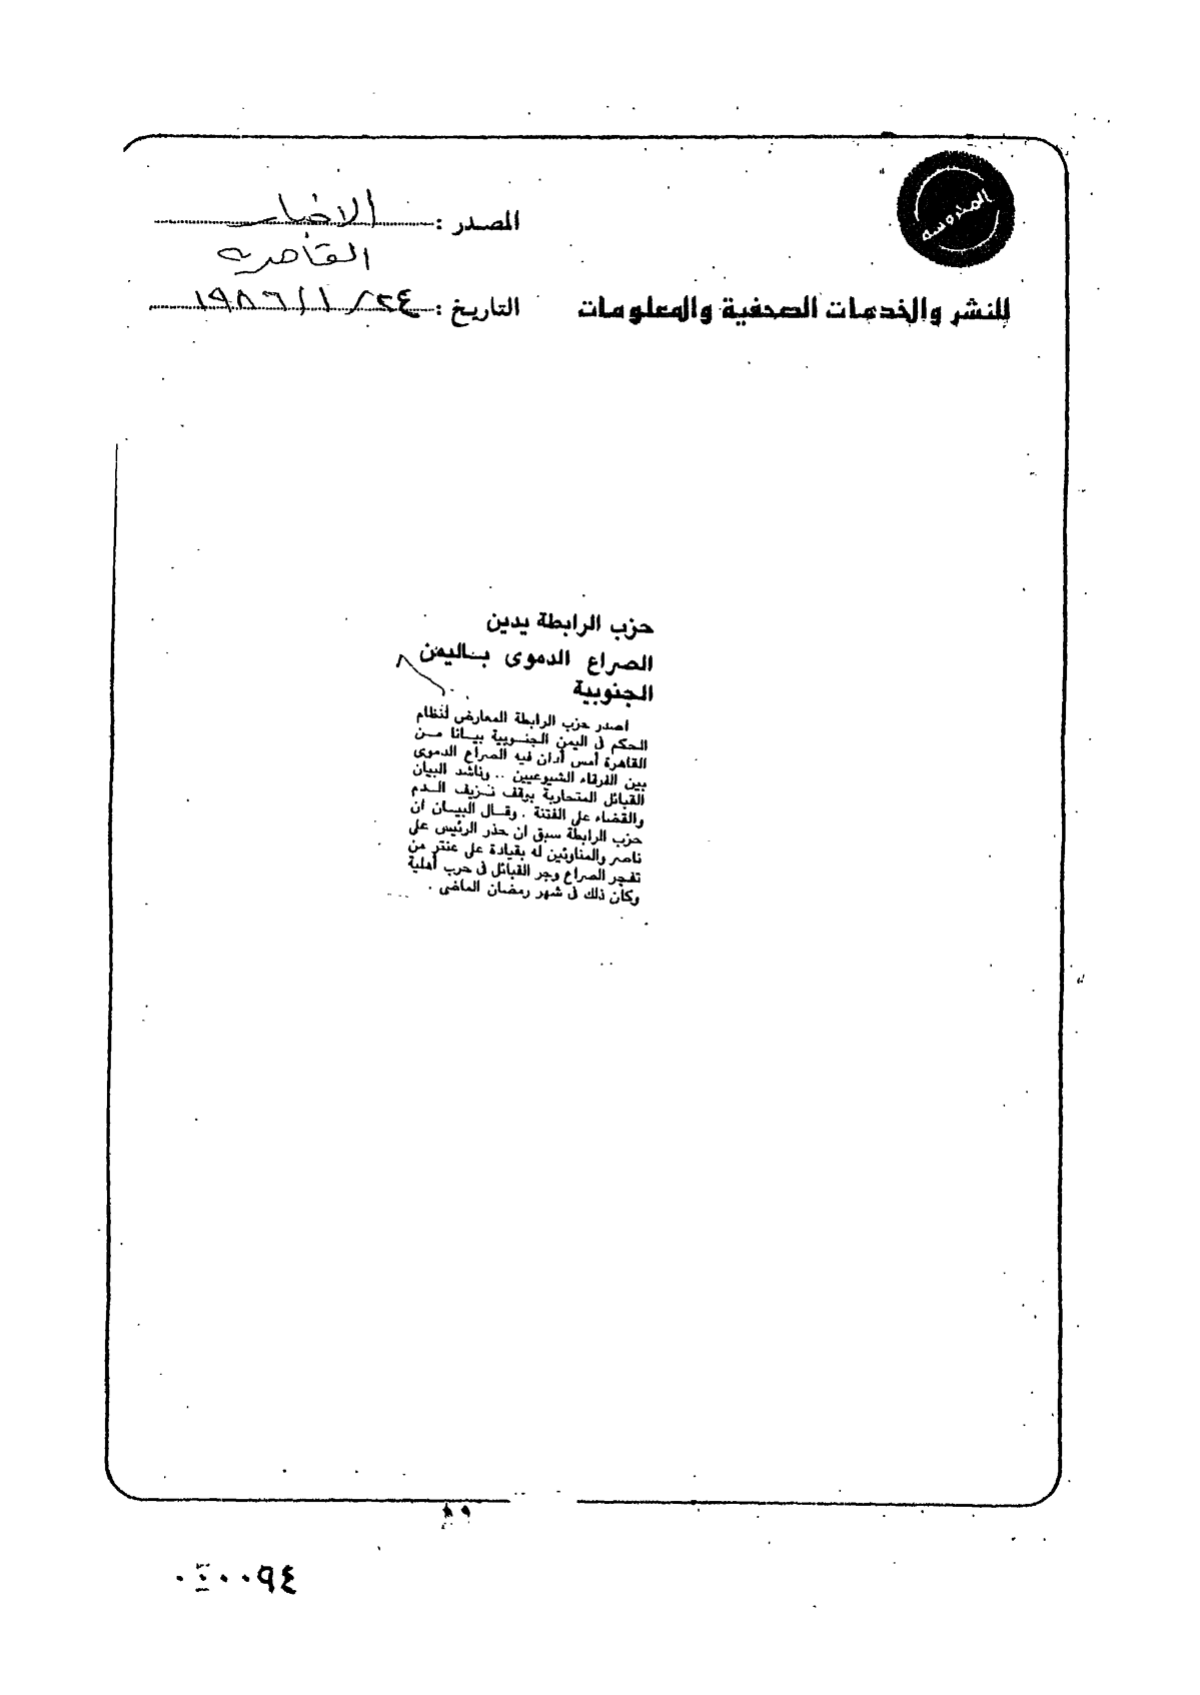 المحروسة
المصدر : الاخبار
القاهرية
للنشر والخدمات الصحفية والمعلومات
التاريخ : ٢٤ / ١ / ١٩٨٦
حزب الرابطة يدين
الصراع الدموى بـاليمن
الجنوبية
اصدر حزب الرابطة المعارض لنظام
الحكم فى اليمن الجنـوبية بيـانا مـن
القاهرة أمس أدان فيه الصراع الدموى
بين الفرقاء الشيوعيين .. وناشد البيان
القبائل المتحاربة بوقف نـزيف الـدم
والقضاء على الفتنة . وقـال البيـان ان
حزب الرابطة سبق ان حذر الرئيس على
ناصر والمناوئين له بقيادة على عنتر من
تفجر الصراع وجر القبائل فى حرب أهلية
وكان ذلك فى شهر رمضان الماضى .